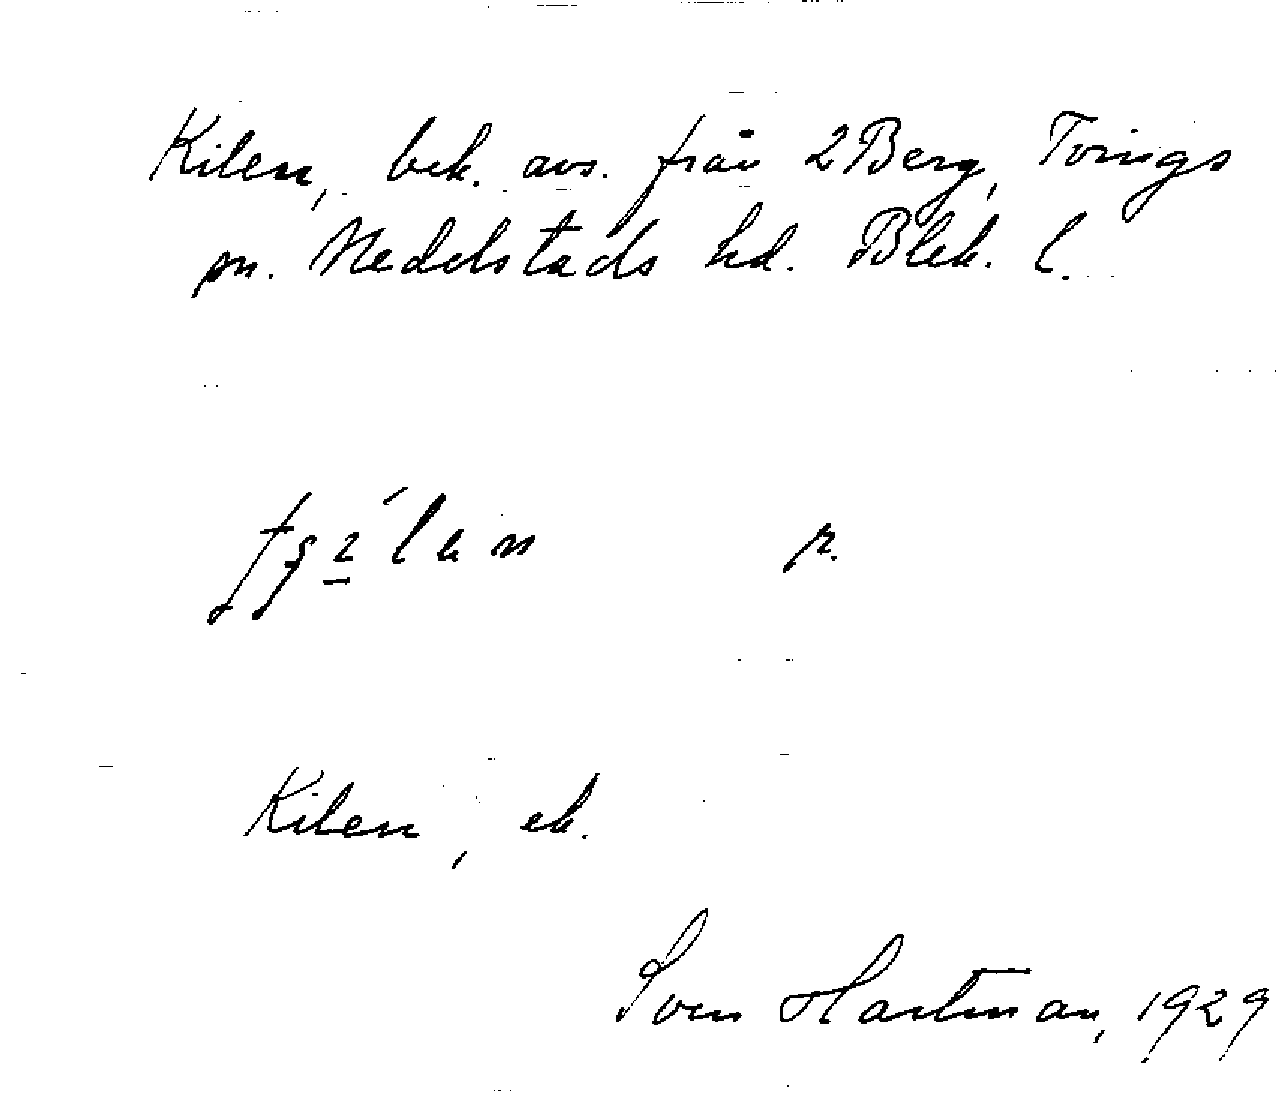 Kilen, bek. avs. från 2 Berg, Tvings
sn. Medelstads hd. Blek. l.
Kilen, ek.
Sven Hartman, 1929